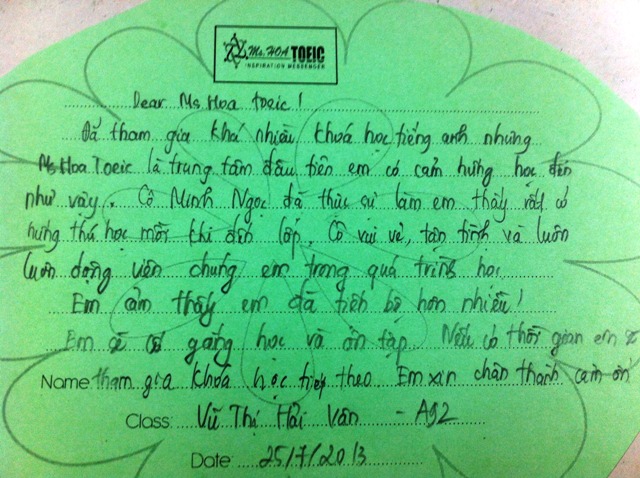 Ms. HOA TOEIC
INSPIRATION MESSENGER
Dear Ms Hoa Toeic!
Đã tham gia khá nhiều khoá học tiếng anh nhưng
Ms Hoa Toeic là trung tâm đầu tiên em có cảm hứng học đến
như vậy. Cô Minh Ngọc đã thực sự làm em thấy rất có
hứng thú học mỗi khi đến lớp. Cô vui vẻ, tận tình và luôn
luôn động viên chúng em trong quá trình học.
Em cảm thấy em đã tiến bộ hơn nhiều!
Em sẽ cố gắng học và ôn tập. Nếu có thời gian em sẽ
Name: tham gia khoá học tiếp theo. Em xin chân thành cảm ơn
Class: Vũ Thị Hải Vân - A92
Date: 25/7/2013